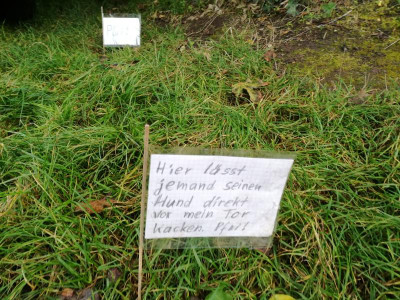 Hier lässt
jemand seinen
Hund direkt
vor mein Tor
kacken. Pfui!